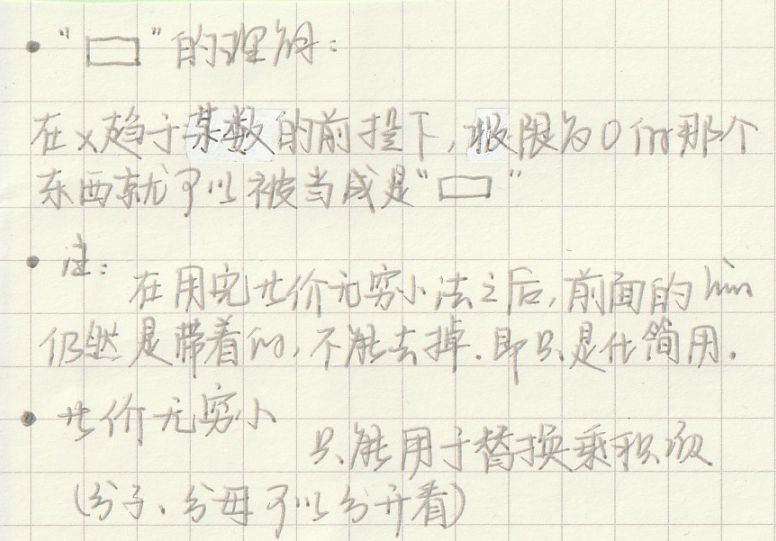 • "▭"的理解:
在x趋于某数的前提下,极限为0的那个
东西就可以被当成是"▭"
• 注:
在用完廿价无穷小法之后,前面的lim
仍然是带着的,不能去掉.即只是化简用.
• 廿价无穷小
只能用于替换乘积项
(分子、分母可以分开看)